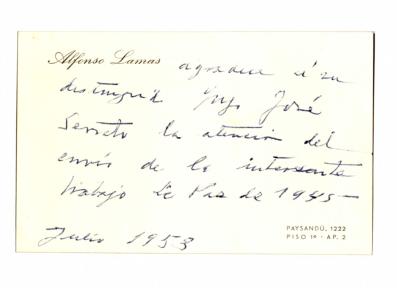 Alfonso Lamas agradece á su
distinguid José
Serrato la atención del
envío de la interesante
trabajo de Paz de 1945-
Julio 1953
PAYSANDÚ, 1222
PISO 1º - AP. 2